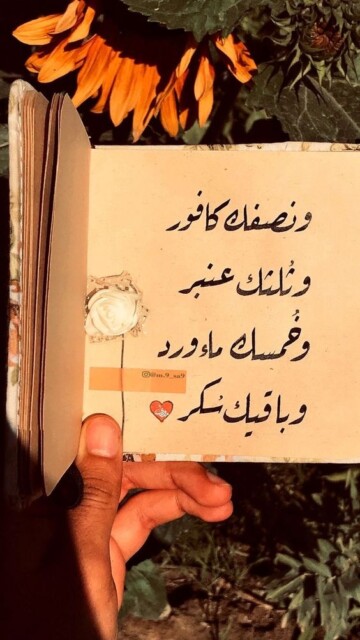 ونصفك كافور
وثُلثك عنبر
وخُمسك ماءورد
وباقيك سُكر